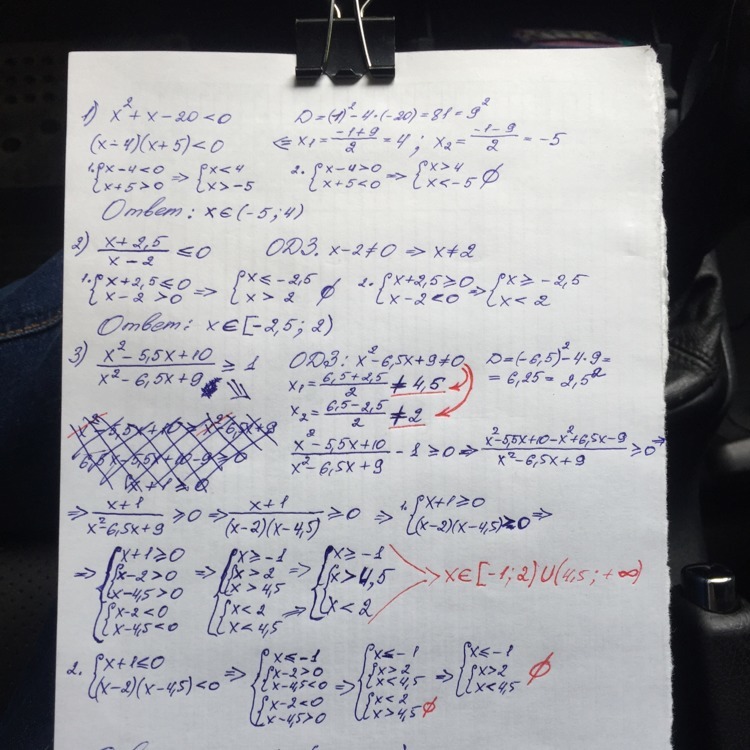 1) x² + x − 20 < 0   D = (1)² − 4·(−20) = 81 = 9²
(x − 4)(x + 5) < 0   ⇐ x₁ = (−1+9)/2 = 4 ; x₂ = (−1−9)/2 = −5
1. { x − 4 < 0, x + 5 > 0 ⇒ { x < 4, x > −5   2. { x − 4 > 0, x + 5 < 0 ⇒ { x > 4, x < −5 ∅
Ответ: x ∈ (−5; 4)
2) (x + 2,5)/(x − 2) ≤ 0   ОДЗ. x − 2 ≠ 0 ⇒ x ≠ 2
1. { x + 2,5 ≤ 0, x − 2 > 0 ⇒ { x ≤ −2,5, x > 2 ∅   2. { x + 2,5 ≥ 0, x − 2 < 0 ⇒ { x ≥ −2,5, x < 2
Ответ: x ∈ [−2,5; 2)
3) (x² − 5,5x + 10)/(x² − 6,5x + 9) ≥ 1   ОДЗ: x² − 6,5x + 9 ≠ 0   D = (−6,5)² − 4·9 =
x₁ = (6,5 + 2,5)/2 ≠ 4,5   = 6,25 = 2,5²
x₂ = (6,5 − 2,5)/2 ≠ 2
x² − 5,5x + 10 ≥ x² − 6,5x + 9
6,5x − 5,5x + 10 − 9 ≥ 0
x + 1 ≥ 0
(x² − 5,5x + 10)/(x² − 6,5x + 9) − 1 ≥ 0 ⇒ (x² − 5,5x + 10 − x² + 6,5x − 9)/(x² − 6,5x + 9) ≥ 0 ⇒
⇒ (x + 1)/(x² − 6,5x + 9) ≥ 0 ⇒ (x + 1)/((x − 2)(x − 4,5)) ≥ 0 ⇒ 1. { x + 1 ≥ 0, (x − 2)(x − 4,5) > 0 ⇒
⇒ { x + 1 ≥ 0, { x − 2 > 0, x − 4,5 > 0, { x − 2 < 0, x − 4,5 < 0 ⇒ { x ≥ −1, { x > 2, x > 4,5, { x < 2, x < 4,5 ⇒ { x ≥ −1, x > 4,5, x < 2 > x ∈ [−1; 2) ∪ (4,5; +∞)
2. { x + 1 ≤ 0, (x − 2)(x − 4,5) < 0 ⇒ { x ≤ −1, { x − 2 > 0, x − 4,5 < 0, { x − 2 < 0, x − 4,5 > 0 ⇒ { x ≤ −1, { x > 2, x < 4,5, { x < 2, x > 4,5 ∅ ⇒ { x ≤ −1, { x > 2, x < 4,5 ∅